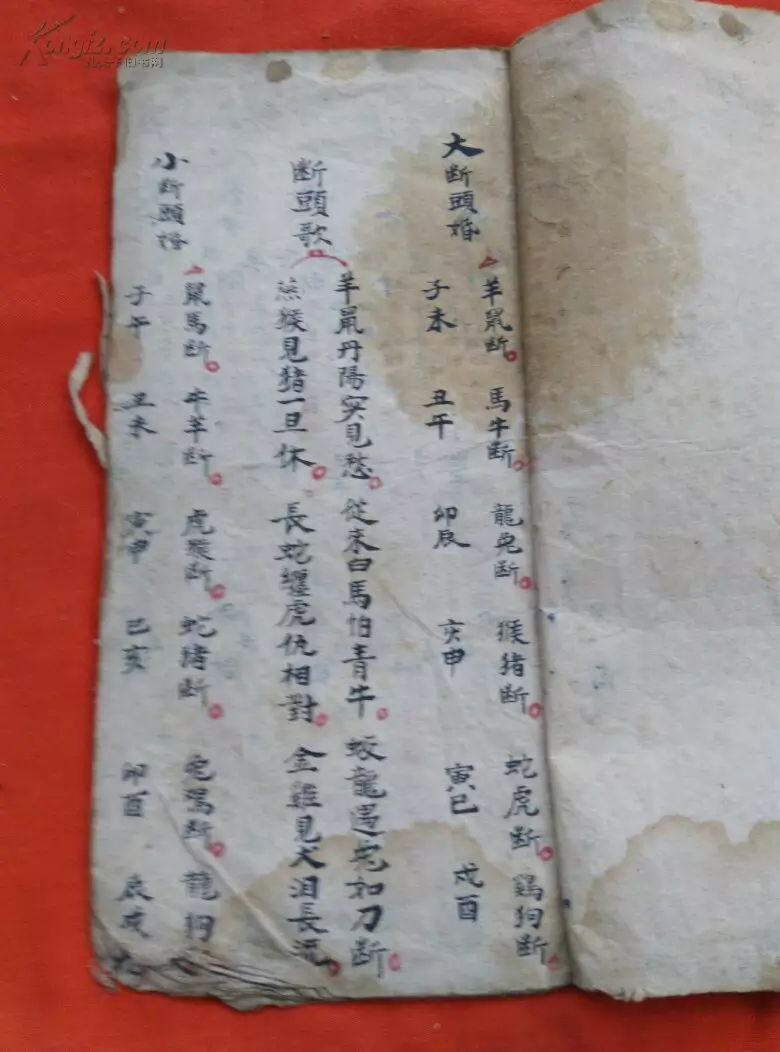 大断頭婚
羊鼠断 馬牛断 龍兔断 猴猪断 蛇虎断 鷄狗断
子未 丑午 卯辰 亥申 寅巳 戌酉
断頭歌
羊鼠丹陽实見愁 從来白馬怕青牛 蛟龍遇兔如刀断
猿猴見猪一旦休 長蛇纏虎仇相對 金雞見犬泪長流
小断頭婚
鼠馬断 牛羊断 虎猴断 蛇猪断 兔鷄断 龍狗
子午 丑未 寅申 巳亥 卯酉 辰戌
Kongfz.com
孔夫子旧书网